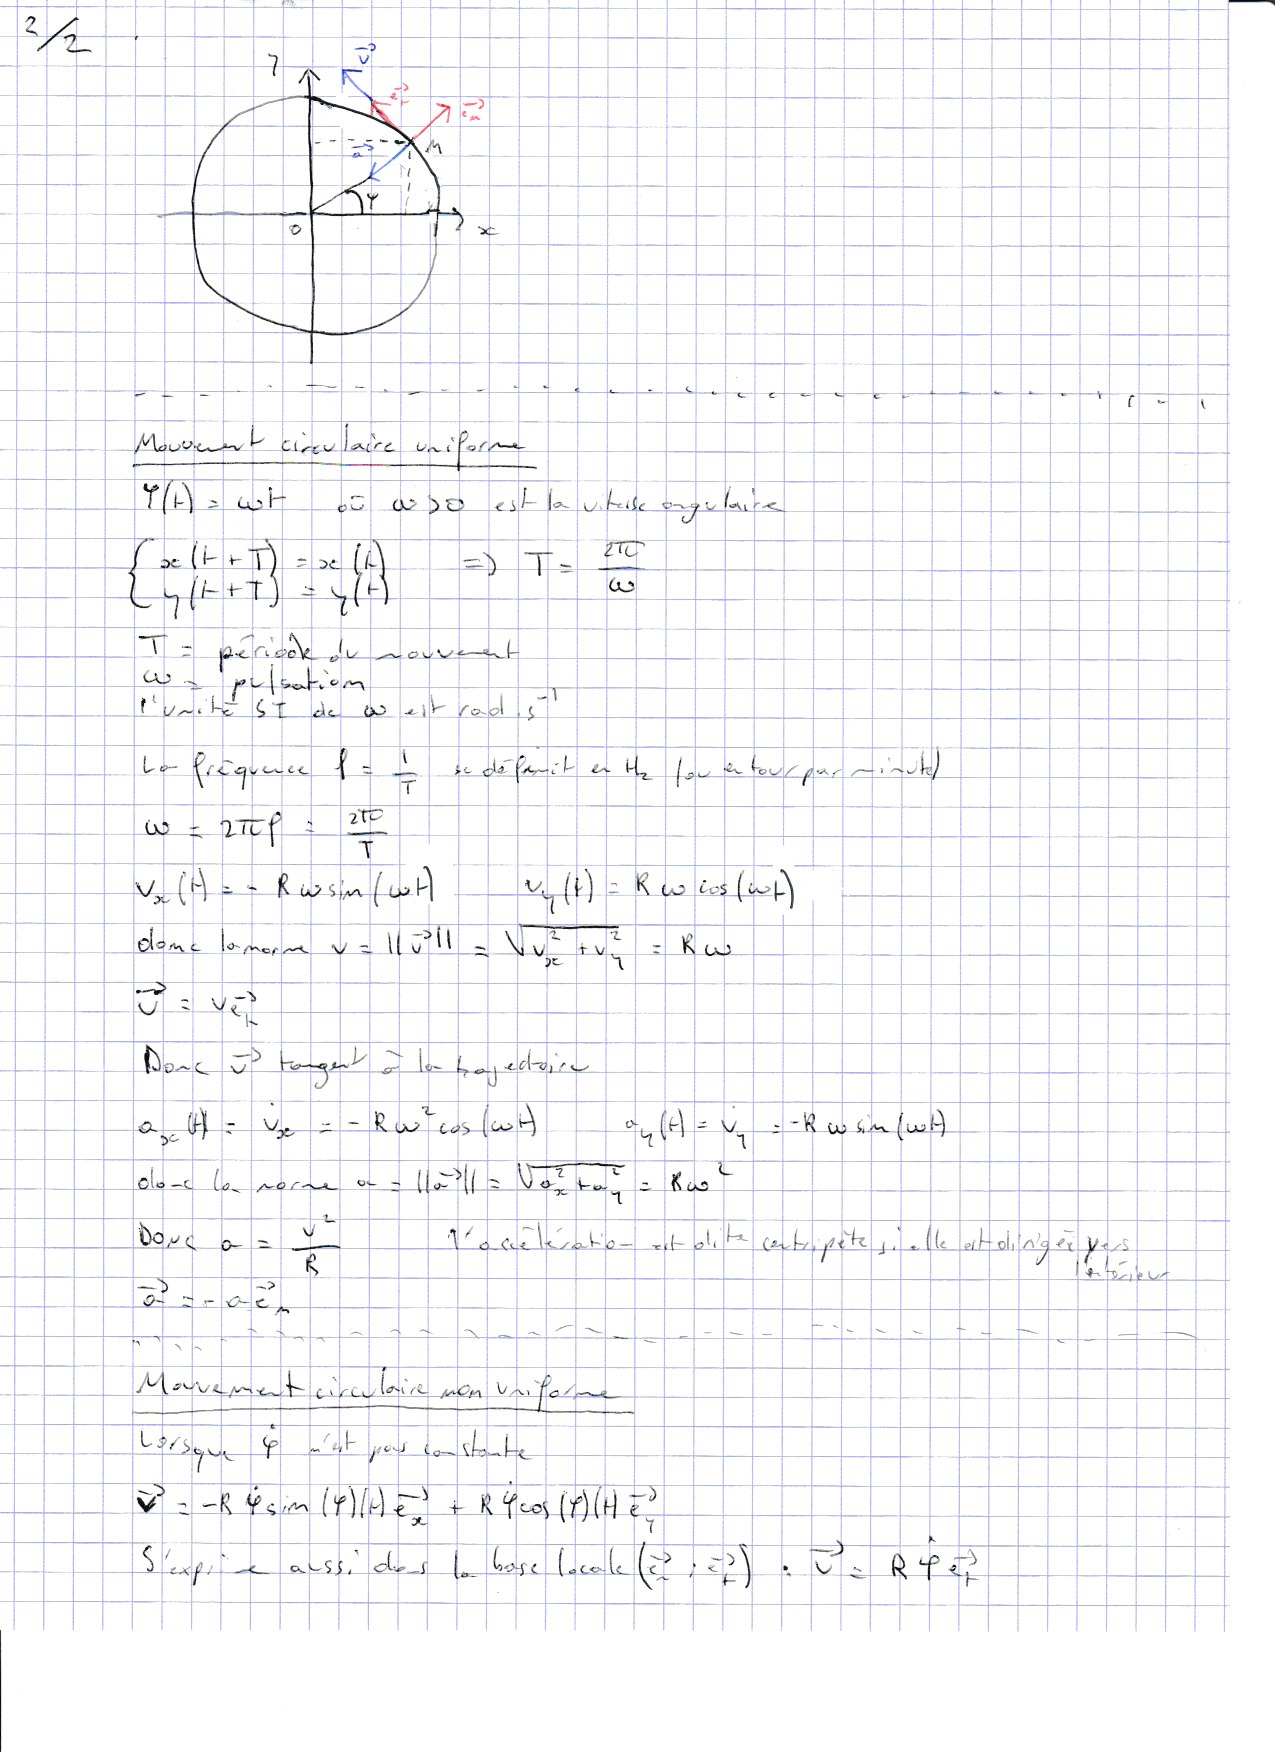 2/2
y
v⃗
e⃗t
e⃗n
M
a⃗
φ
O
x
Mouvement circulaire uniforme
φ(t) = ωt où ω>0 est la vitesse angulaire
{ x(t+T) = x(t) => T = 2π/ω
y(t+T) = y(t)
T = période du mouvement
ω = pulsation
l'unité SI de ω est rad.s⁻¹
La fréquence f = 1/T se définit en Hz (ou en tour par minute)
ω = 2πf = 2π/T
vx(t) = - Rω sin(ωt) vy(t) = Rω cos(ωt)
donc la norme v = ||v⃗|| = √(vx² + vy²) = Rω
v⃗ = v e⃗t
Donc v⃗ tangent à la trajectoire
ax(t) = v̇x = -Rω² cos(ωt) ay(t) = v̇y = -Rω sin(ωt)
donc la norme a = ||a⃗|| = √(ax² + ay²) = Rω²
Donc a = v²/R l'accélération est dite centripète si elle est dirigée vers
l'intérieur
a⃗ = - a e⃗n
Mouvement circulaire non uniforme
Lorsque φ̇ n'est pas constante
v⃗ = -R φ̇ sin(φ)(t) e⃗x + R φ̇ cos(φ)(t) e⃗y
S'exprime aussi dans la base locale (e⃗n ; e⃗t) : v⃗ = R φ̇ e⃗t